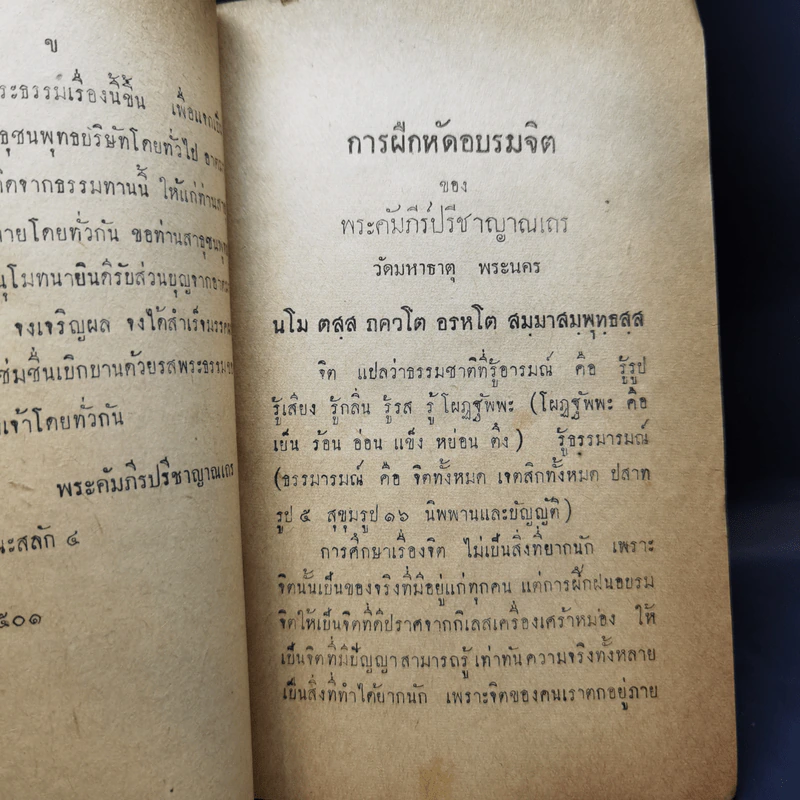 ข
ระธรรมเรื่องนี้ขึ้น เพื่อแจกเป็น
ธุชนพุทธบริษัทโดยทั่วไป
กิดจากธรรมทานนี้ ให้แก่ท่าน
ายโดยทั่วกัน ขอท่านสาธุชน
นุโมทนายินดีรับส่วนบุญจาก
จงเจริญผล จงได้สำเร็จมรรค
ชุ่มชื่นเบิกบานด้วยรสพระธรรม
เจ้าโดยทั่วกัน
พระคัมภีรปรีชาญาณเถร
ณะสลัก ๔
๕๐๑
การฝึกหัดอบรมจิต
ของ
พระคัมภีร์ปรีชาญาณเถร
วัดมหาธาตุ พระนคร
นโม ตสฺส ภควโต อรหโต สมฺมาสมฺพุทฺธสฺส
จิต แปลว่าธรรมชาติที่รู้อารมณ์ คือ รู้รูป
รู้เสียง รู้กลิ่น รู้รส รู้โผฏฐัพพะ (โผฏฐัพพะ คือ
เย็น ร้อน อ่อน แข็ง หย่อน ตึง) รู้ธรรมารมณ์
(ธรรมารมณ์ คือ จิตทั้งหมด เจตสิกทั้งหมด ปสาท
รูป ๕ สุขุมรูป ๑๖ นิพพานและบัญญัติ)
การศึกษาเรื่องจิต ไม่เป็นสิ่งที่ยากนัก เพราะ
จิตนั้นเป็นของจริงที่มีอยู่แก่ทุกคน แต่การฝึกฝนอบรม
จิตให้เป็นจิตที่ดีปราศจากกิเลสเครื่องเศร้าหมอง ให้
เป็นจิตที่มีปัญญาสามารถรู้เท่าทันความจริงทั้งหลาย
เป็นสิ่งที่ทำได้ยากนัก เพราะจิตของคนเราตกอยู่ภาย